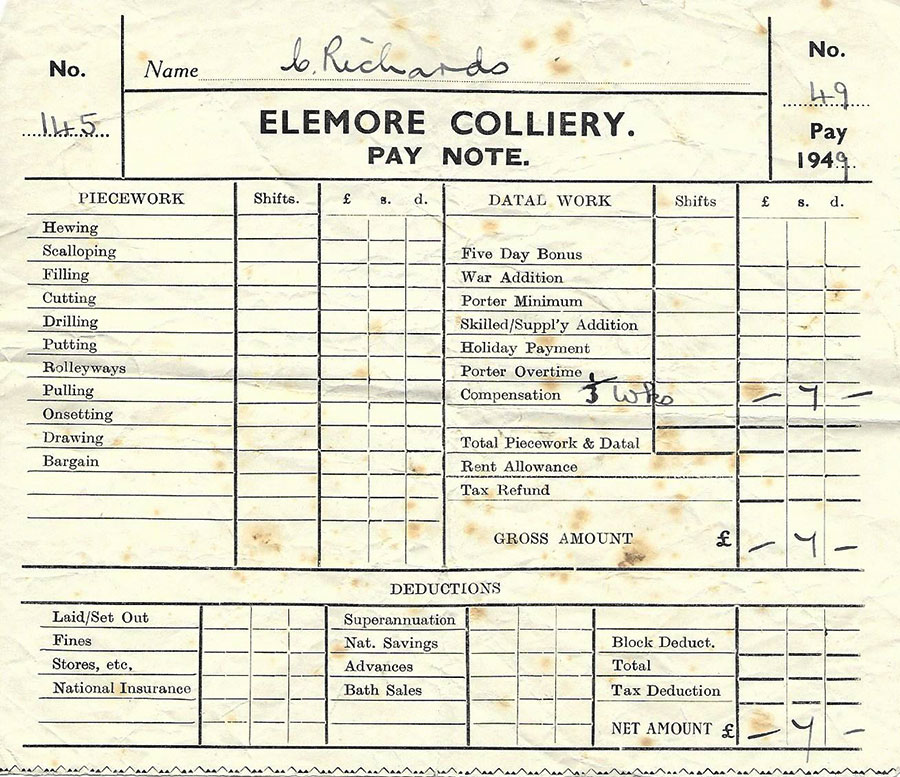 No. Name C. Richards No.
145 49
ELEMORE COLLIERY.
PAY NOTE.
Pay
1949
PIECEWORK Shifts. £ s. d. DATAL WORK Shifts £ s. d.
Hewing
Scalloping Five Day Bonus
Filling War Addition
Cutting Porter Minimum
Drilling Skilled/Suppl'y Addition
Putting Holiday Payment
Rolleyways Porter Overtime
Pulling Compensation wks – 4 –
Onsetting
Drawing Total Piecework & Datal
Bargain Rent Allowance
Tax Refund
GROSS AMOUNT £ – 4 –
DEDUCTIONS
Laid/Set Out Superannuation
Fines Nat. Savings Block Deduct.
Stores, etc, Advances Total
National Insurance Bath Sales Tax Deduction
NET AMOUNT £ – 4 –